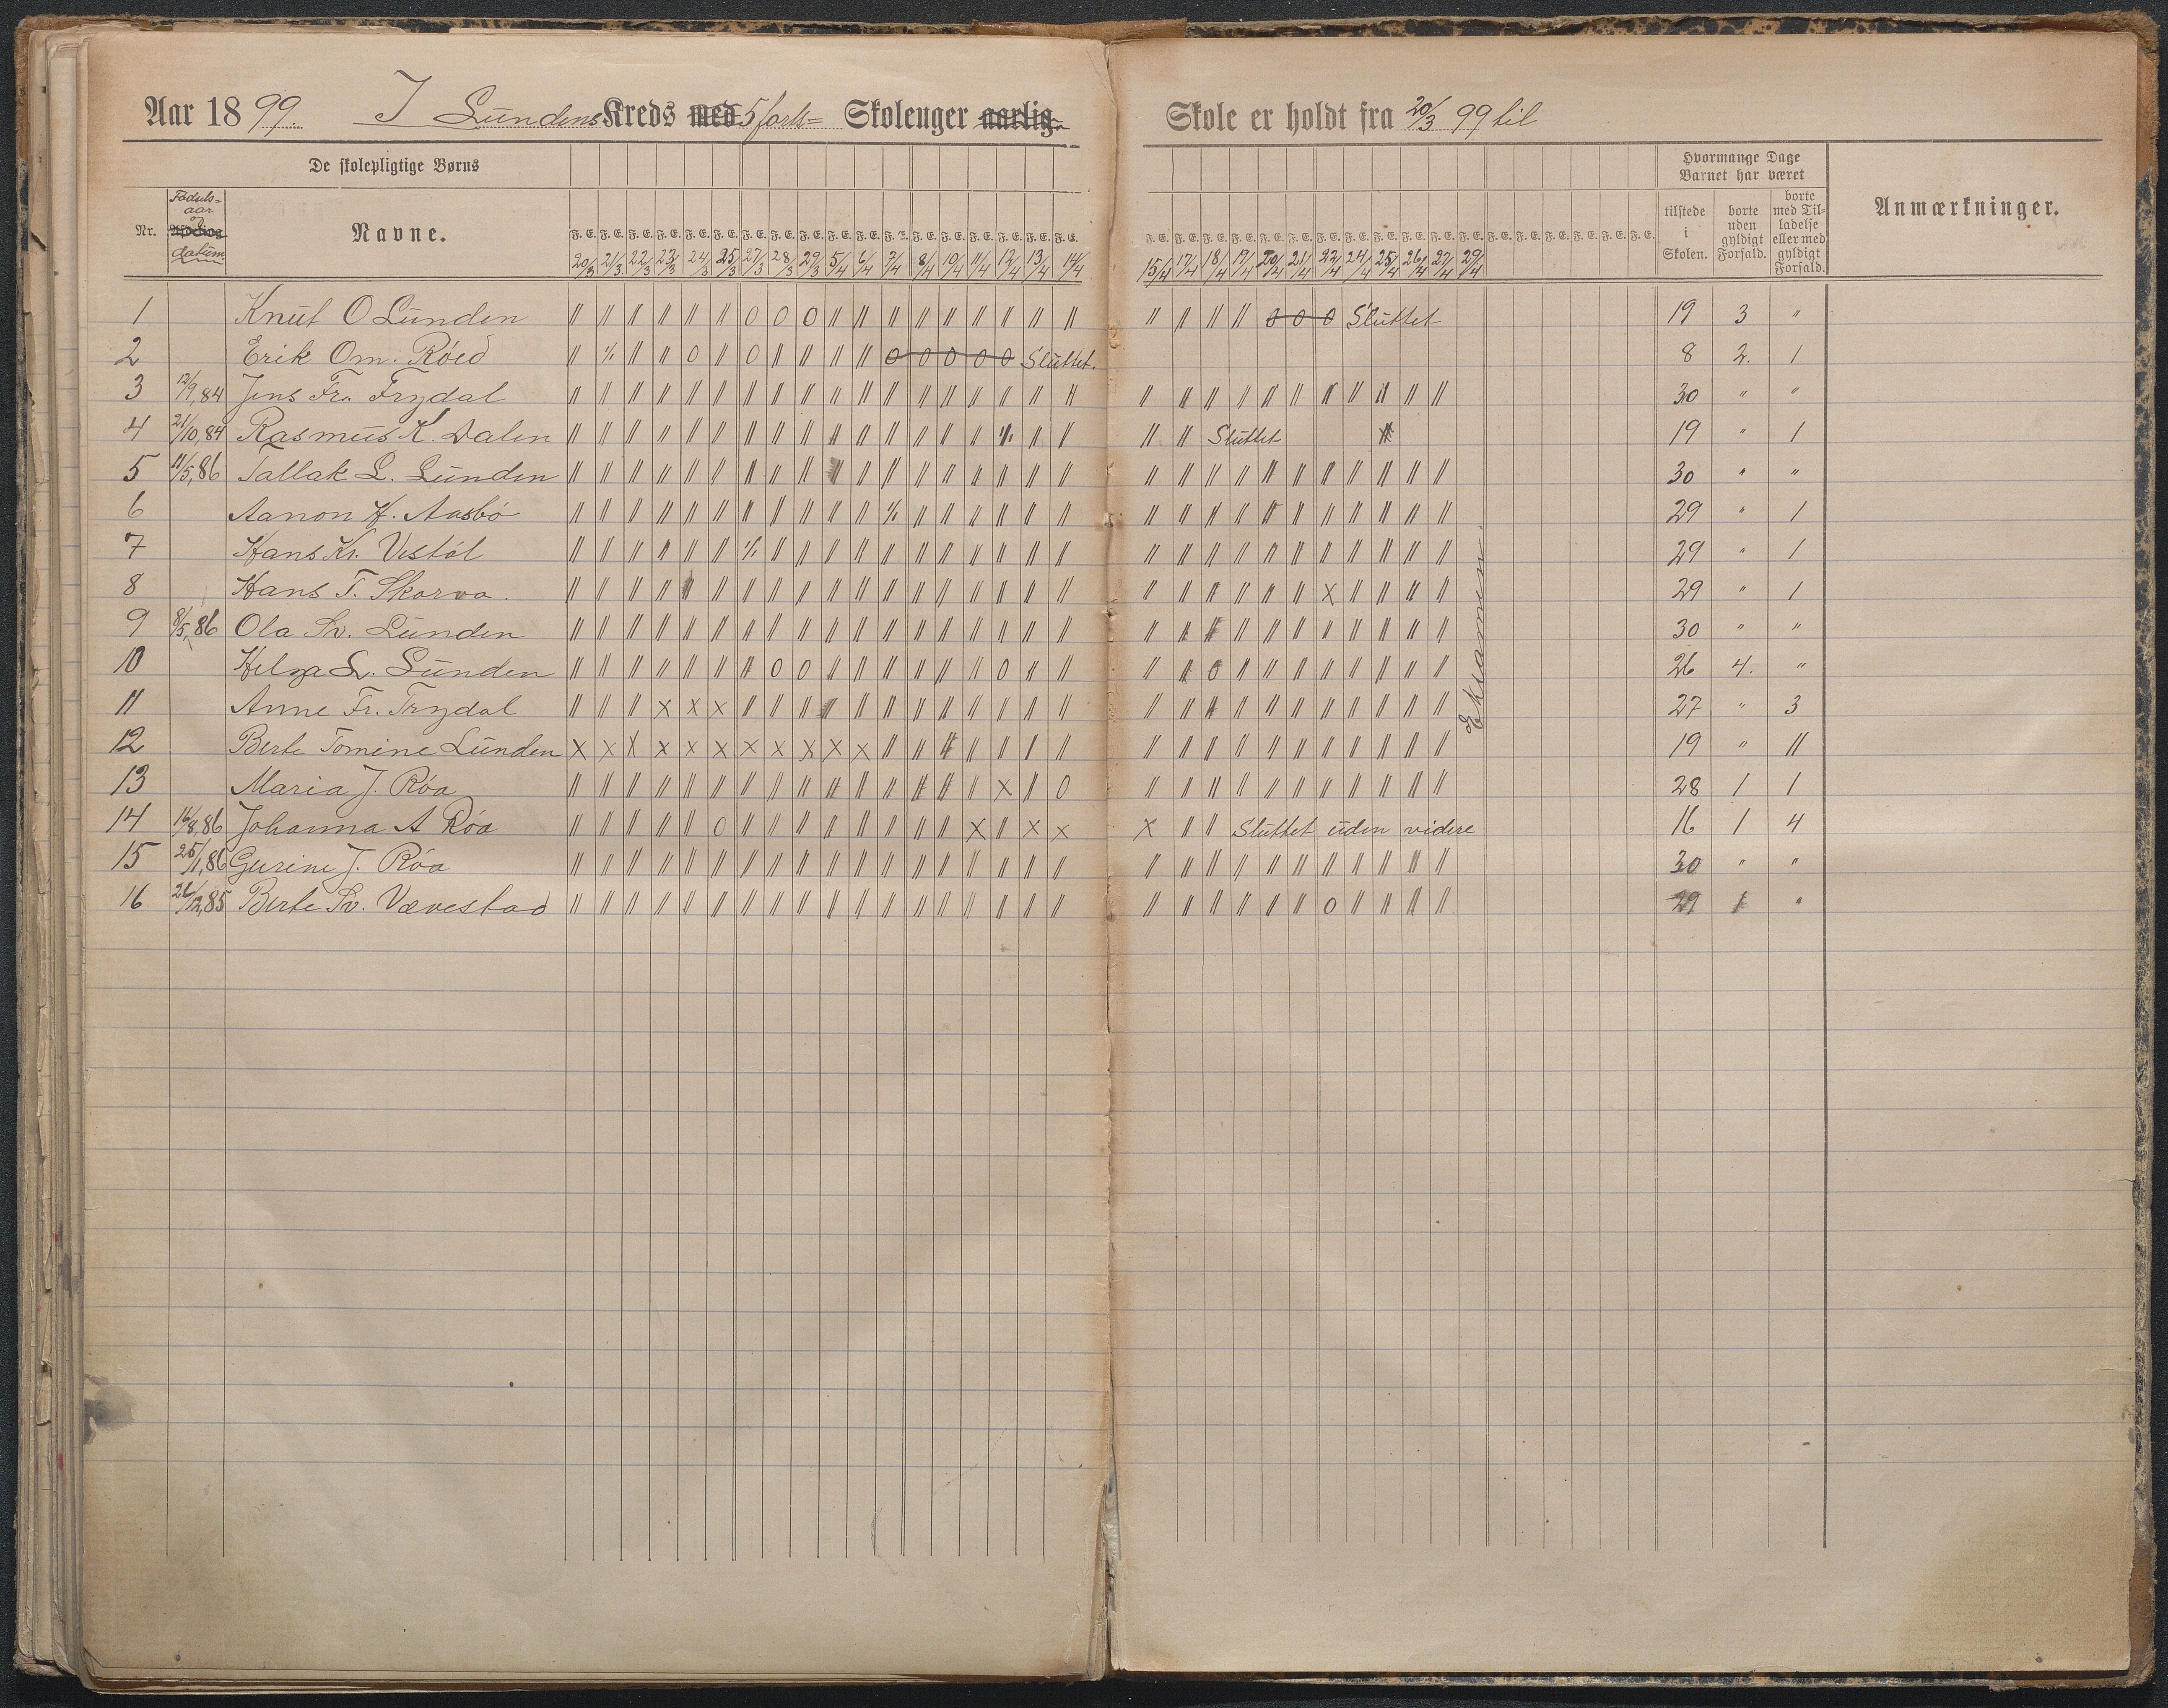 Aar 1899. I Lundens Kreds med 5 forts= Skoleuger aarlig. Skole er holdt fra 20/3 99 til
De skolepligtige Børns
Hvormange Dage Barnet har været
Nr. Fødselsaar og datum Navne.
F. E. F. E. F. E. F. E. F. E. F. E. F. E. F. E. F. E. F. E. F. E. F. E. F. E. F. E. F. E. F. E. F. E. F. E.
F. E. F. E. F. E. F. E. F. E. F. E. F. E. F. E. F. E. F. E. F. E. F. E. F. E. F. E. F. E. F. E. F. E. F. E.
tilstede i Skolen. borte uden gyldigt Forfald. borte med Tilladelse eller med gyldigt Forfald. Anmærkninger.
20/3 21/3 22/3 23/3 24/3 25/3 27/3 28/3 29/3 5/4 6/4 7/4 8/4 10/4 11/4 12/4 13/4 14/4 15/4 17/4 18/4 19/4 20/4 21/4 22/4 24/4 25/4 26/4 27/4 29/4
1 Knut O Lunden // // // // // // 0 0 0 // // // // // // // // // // // // // 0 0 0 Sluttet 19 3 "
2 Erik Om. Röed // % // // 0 // 0 // // // // 0 0 0 0 0 Sluttet. 8 2. 1
3 12/9,84 Jens Fr. Trydal // // // // // // // // // // // // // // // // // // // // // // // // // // // // // 30 " "
4 21/10,84 Rasmus K. Dalen // // // // // // // // // // // // // // // % // // // // Sluttet 19 " 1
5 11/5,86 Tallak L. Lunden // // // // // // // // // // // // // // // // // // // // // // // // // // // // // 30 " "
6 Aanon K. Aasbö // // // // // // // // // // // % // // // // // // // // // // // // // // // // // 29 " 1
7 Hans Kr. Vestöl // // // // // // % // // // // // // // // // // // // // // // // // // // // // // 29 " 1
8 Hans T. Skarva. // // // // // // // // // // // // // // // // // // // // // // // // x // // // // 29 " 1
9 8/5,86 Ola Sv. Lunden // // // // // // // // // // // // // // // // // // // // // // // // // // // // // 30 " "
10 Helga L. Lunden // // // // // // // 0 0 // // // // // // 0 // // // // 0 // // // // // // // // 26 4. "
11 Anne Fr. Trydal // // // x x x // // // // // // // // // // // // // // // // // // // // // // // 27 " 3
12 Berte Tomine Lunden x x x x x x x x x x x // // // // // // // // // // // // // // // // // // 19 " 11
13 Maria J. Röa // // // // // // // // // // // // // // // x // 0 // // // // // // // // // // // 28 1 1
14 16/8,86 Johanna A Röa // // // // // 0 // // // // // // // // x // x x x // // Sluttet uden videre 16 1 4
15 25/1,86 Gurine J. Röa // // // // // // // // // // // // // // // // // // // // // // // // // // // // // 30 " "
16 26/12,85 Berte Sv. Vævestad // // // // // // // // // // // // // // // // // // // // // // // // 0 // // // // 29 1 "
Eksamen.